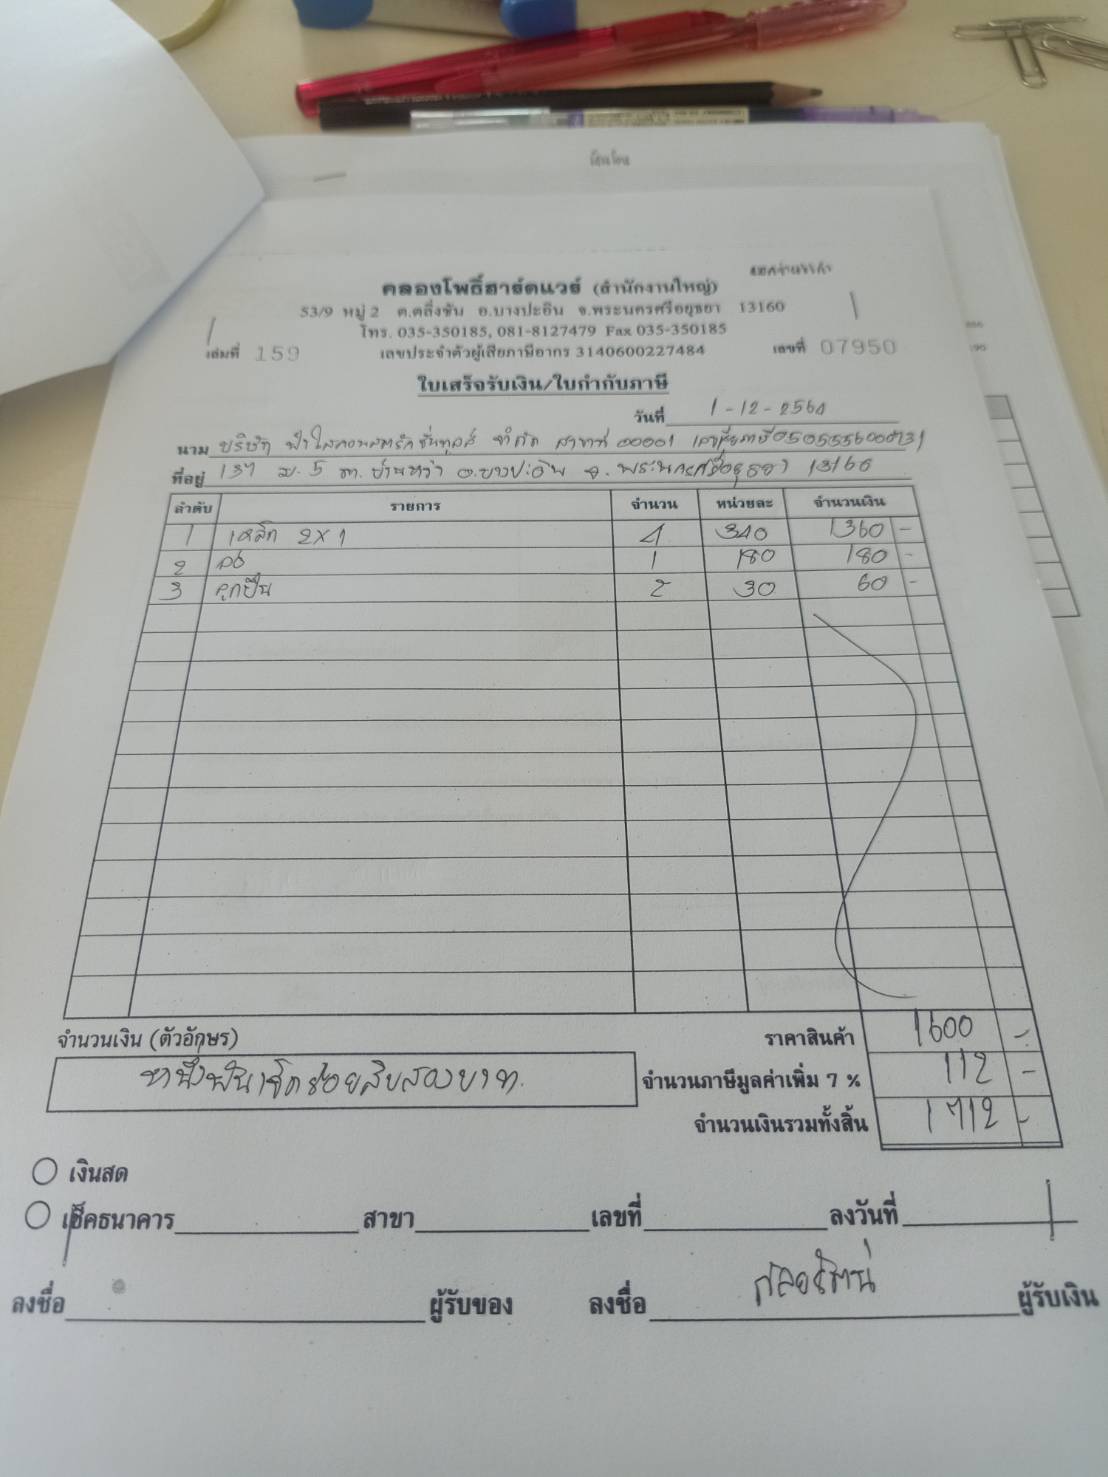 คลองโพธิ์ฮาร์ดแวร์ (สำนักงานใหญ่)
53/9 หมู่ 2 ต.ตลิ่งชัน อ.บางปะอิน จ.พระนครศรีอยุธยา 13160
โทร. 035-350185, 081-8127479 Fax 035-350185
เล่มที่ 159 เลขประจำตัวผู้เสียภาษีอากร 3140600227484 เลขที่ 07950
ใบเสร็จรับเงิน/ใบกำกับภาษี
วันที่ 1-12-2564
นาม บริษัท ฟ้าใส จำกัด สาขาที่ 00001
ที่อยู่ 137 ม.5 ต.บ้านหว้า อ.บางปะอิน จ.พระนครศรีอยุธยา 13160
ลำดับ รายการ จำนวน หน่วยละ จำนวนเงิน
1 เหล็ก 2X1 4 340 1360 -
2 1 180 180 -
3 ลูกปืน 2 30 60 -
จำนวนเงิน (ตัวอักษร) ราคาสินค้า 1600 -
หนึ่งพันเจ็ดร้อยสิบสองบาท. จำนวนภาษีมูลค่าเพิ่ม 7 % 112 -
จำนวนเงินรวมทั้งสิ้น 1712 -
เงินสด
เช็คธนาคาร สาขา เลขที่ ลงวันที่
ลงชื่อ ผู้รับของ ลงชื่อ ผู้รับเงิน